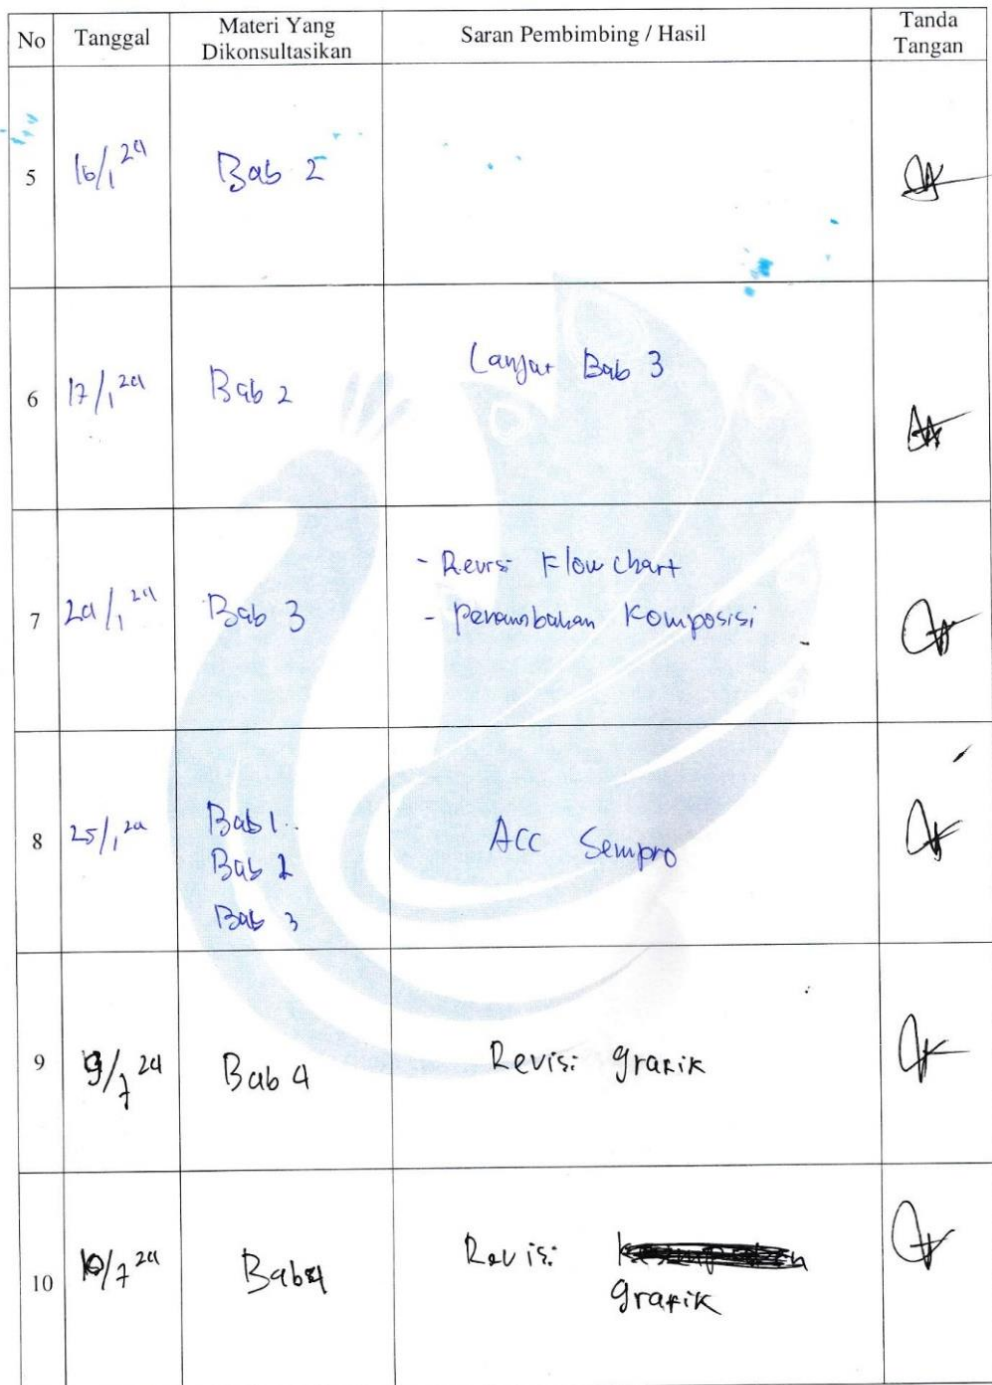 No Tanggal Materi Yang Dikonsultasikan Saran Pembimbing / Hasil Tanda Tangan
5 16/1 24 Bab 2
6 17/1 24 Bab 2 Lanjut Bab 3
7 24/1 24 Bab 3 - Revisi Flow chart
- Penambahan Komposisi
8 25/1 24 Bab 1 Acc Sempro
Bab 2
Bab 3
9 9/7 24 Bab 4 Revisi grafik
10 10/7 24 Bab 4 Revisi
grafik